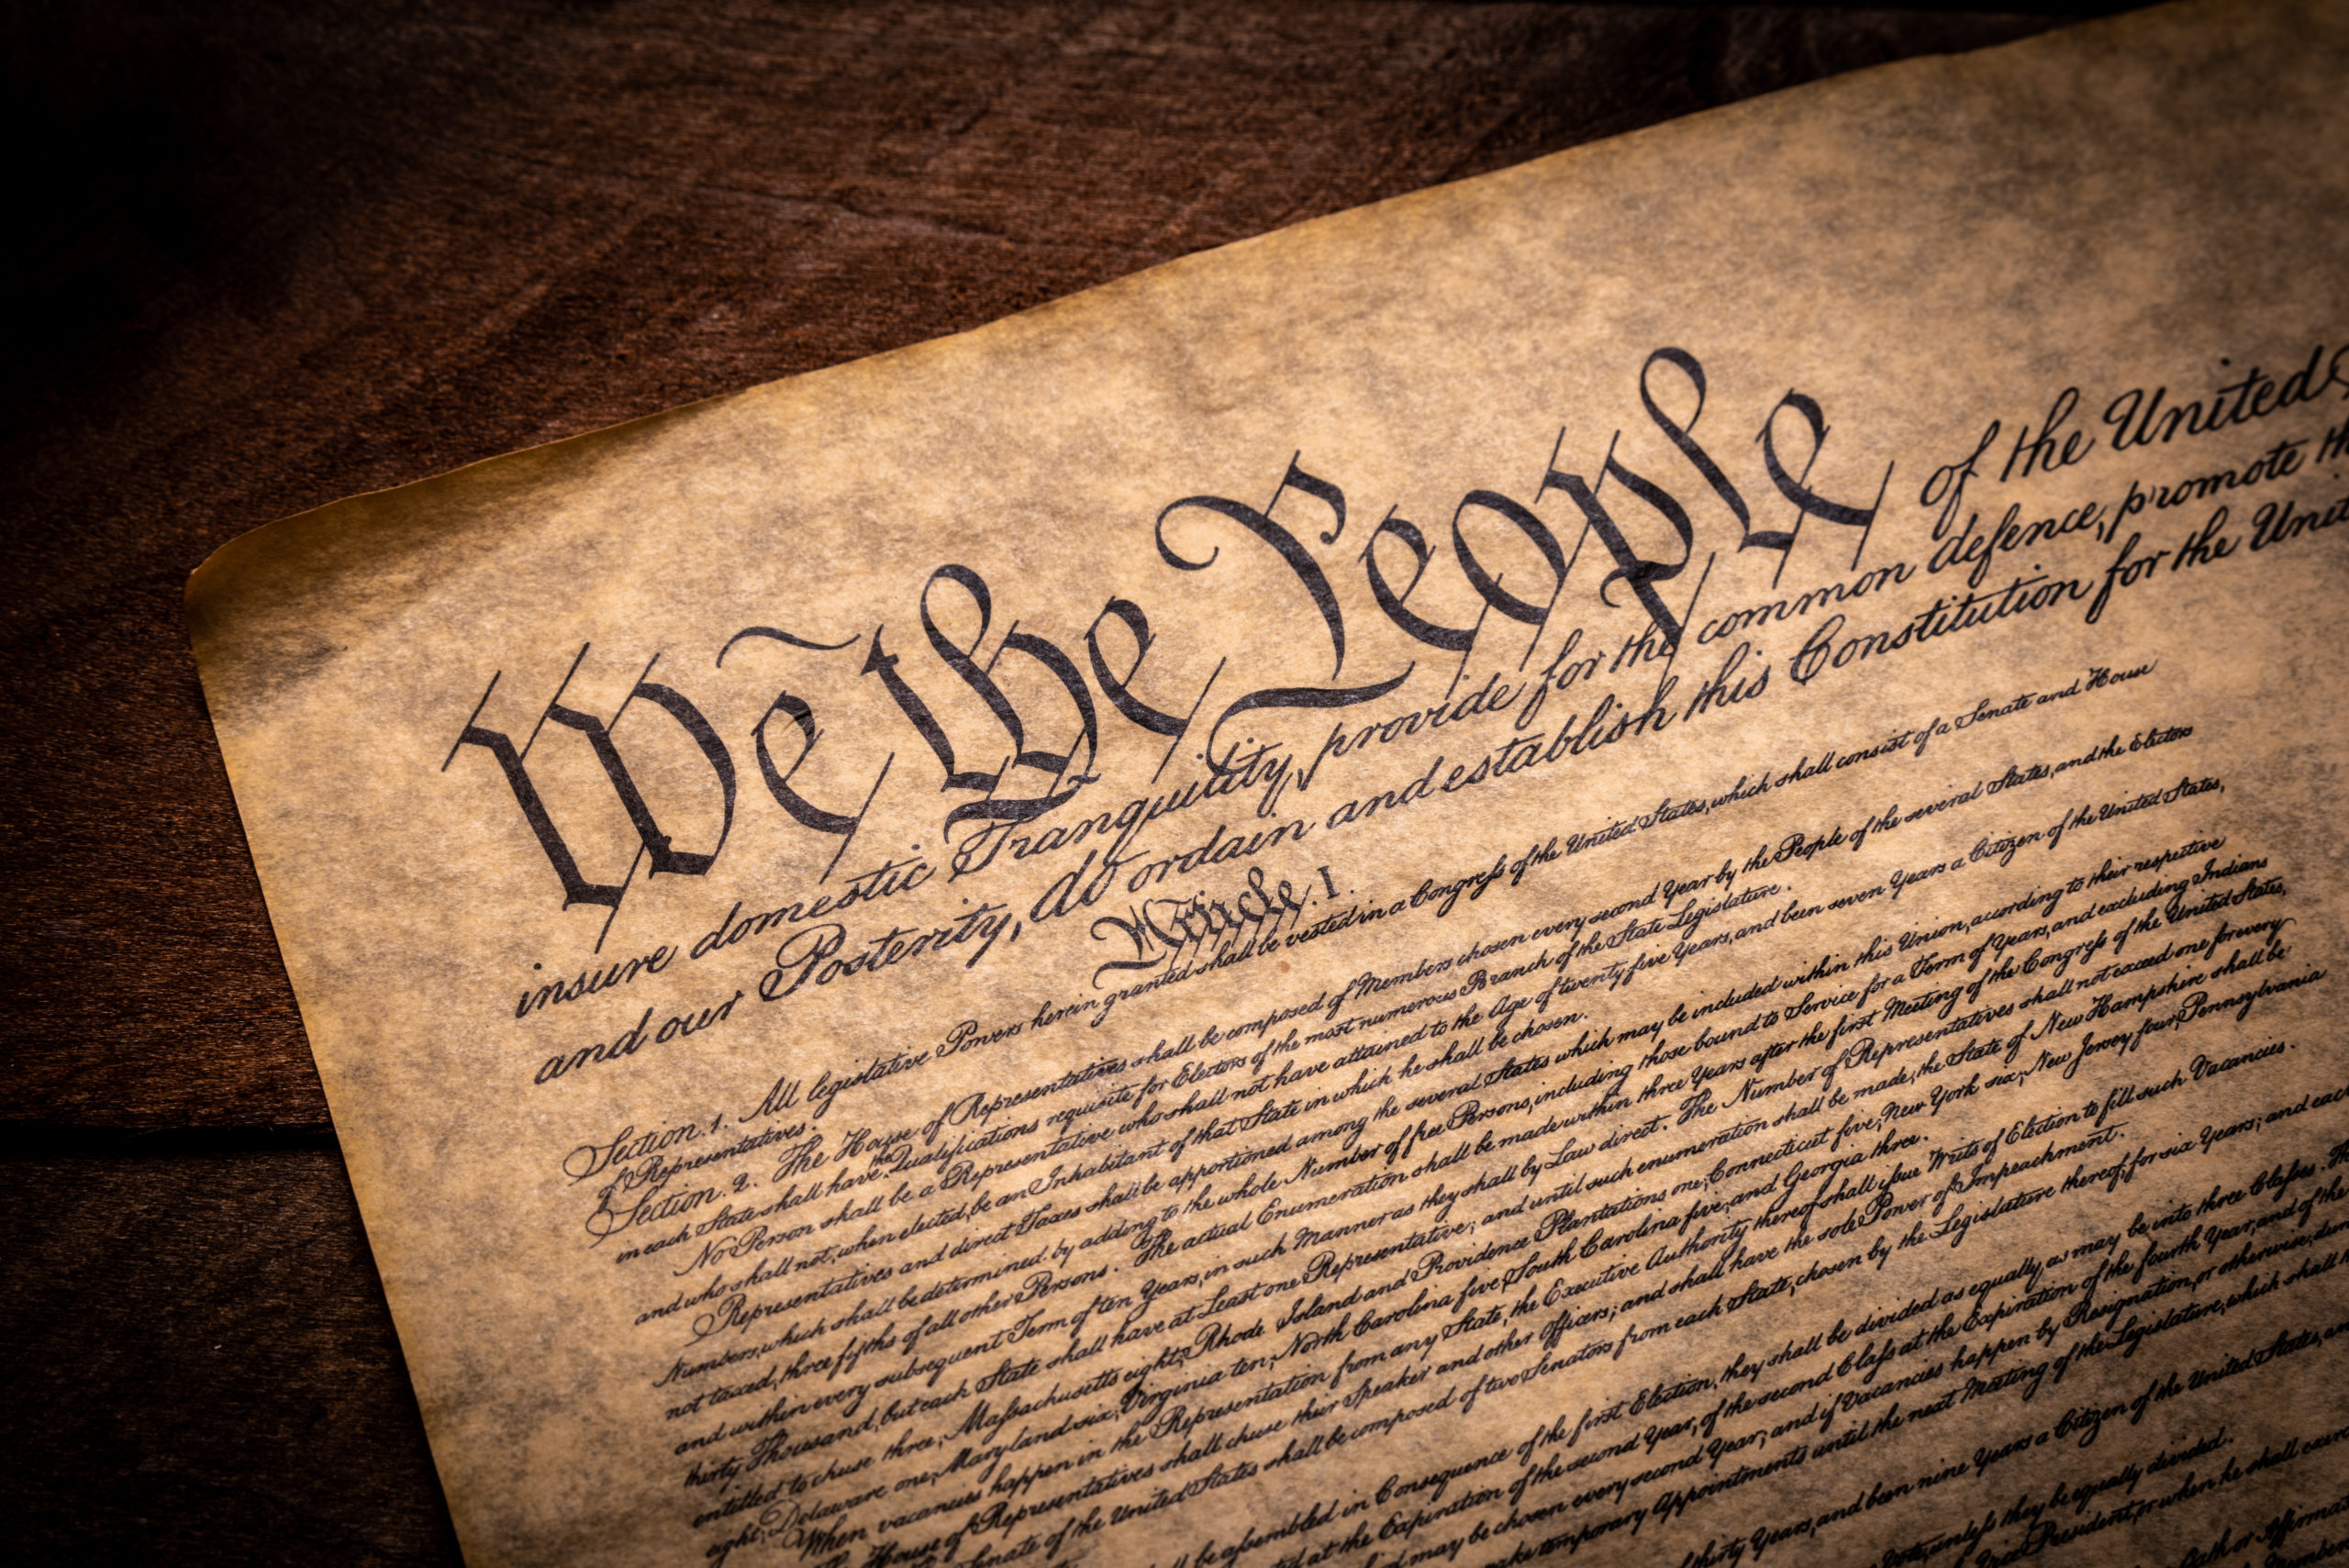 We the People of the United
insure domestic Tranquility, provide for the common defence, promote
and our Posterity, do ordain and establish this Constitution for the
Article. I.
Section. 1. All legislative Powers herein granted shall be vested in a Congress of the United States, which shall consist of a Senate and House
of Representatives.
Section. 2. The House of Representatives shall be composed of Members chosen every second Year by the People of the several States, and the Electors
in each State shall have the Qualifications requisite for Electors of the most numerous Branch of the State Legislature.
No Person shall be a Representative who shall not have attained to the Age of twenty five Years, and been seven Years a Citizen of the United States,
and who shall not, when elected, be an Inhabitant of that State in which he shall be chosen.
Representatives and direct Taxes shall be apportioned among the several States which may be included within this Union, according to their respective
Numbers, which shall be determined by adding to the whole Number of free Persons, including those bound to Service for a Term of Years, and excluding Indians
not taxed, three fifths of all other Persons. The actual Enumeration shall be made within three Years after the first Meeting of the Congress of the United States,
and within every subsequent Term of ten Years, in such Manner as they shall by Law direct. The Number of Representatives shall not exceed one for every
thirty Thousand, but each State shall have at Least one Representative; and until such enumeration shall be made, the State of New Hampshire shall be
entitled to chuse three, Massachusetts eight, Rhode Island and Providence Plantations one, Connecticut five, New York six, New Jersey four, Pennsylvania
eight, Delaware one, Maryland six, Virginia ten, North Carolina five, South Carolina five, and Georgia three.
When vacancies happen in the Representation from any State, the Executive Authority thereof shall issue Writs of Election to fill such Vacancies.
The House of Representatives shall chuse their Speaker and other Officers; and shall have the sole Power of Impeachment.
Senate of the United States shall be composed of two Senators from each State, chosen by the Legislature thereof, for six Years; and each
be assembled in Consequence of the first Election, they shall be divided as equally as may be into three Classes.
at the Expiration of the second Year, of the second Class at the Expiration of the fourth Year, and of the
may be chosen every second Year; and if Vacancies happen by Resignation, or otherwise,
make temporary Appointments until the next Meeting of the Legislature, which shall
thirty Years, and been nine Years a Citizen of the United States,
Vote, unless they be equally divided.
President, or when he shall
Oath or